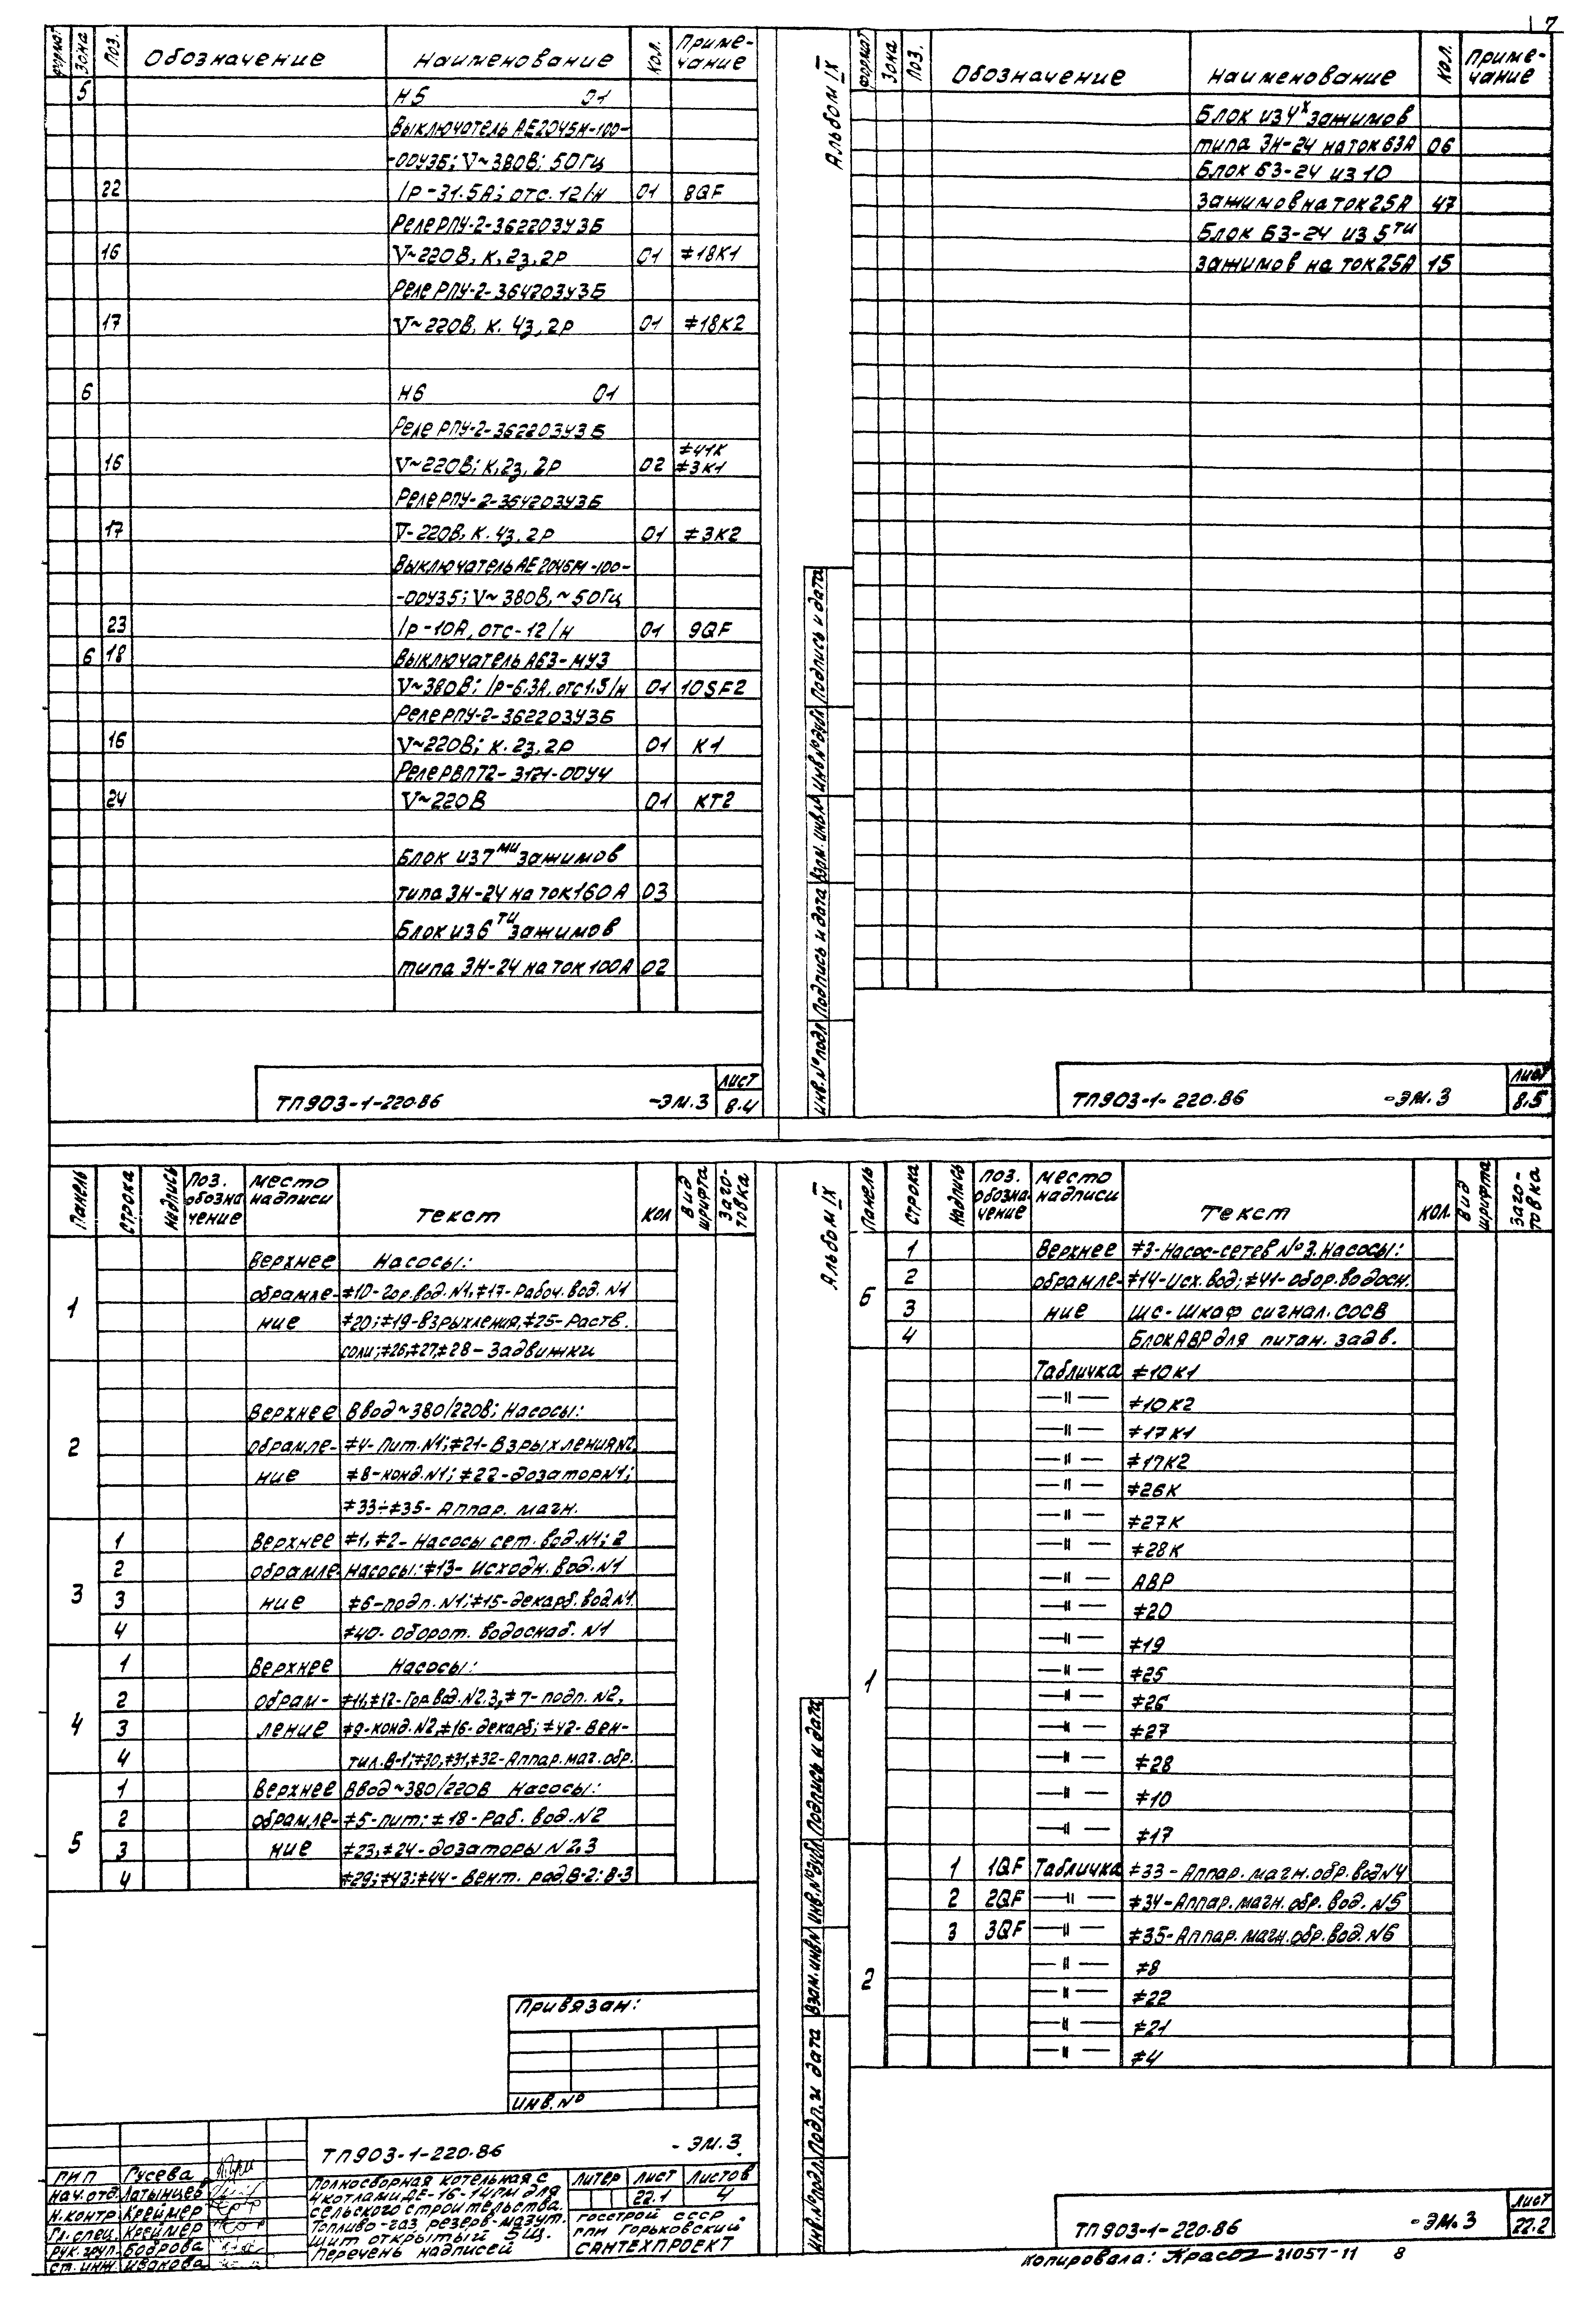 7
формат Зона Поз. Обозначение Наименование Кол. Приме-
чание
5 Н5 01
Выключатель АЕ2045М-100-
-00У3Б; V~380В; 50Гц
22 Iр-31.5А; отс. 12Iн 01 8QF
Реле РПУ-2-362203У3Б
16 V~220В, К. 2з, 2Р 01 ≠18К1
Реле РПУ-2-364203У3Б
17 V~220В, К. 4з, 2Р 01 ≠18К2
6 Н6 01
Реле РПУ-2-362203У3Б
≠41К
16 V~220В; К, 2з, 2Р 02 ≠3К1
Реле РПУ-2-364203У3Б
17 V-220В, К. 4з, 2Р 01 ≠3К2
Выключатель АЕ2045М-100-
-00У3Б; V~380В, ~50Гц
23 Iр-10А, отс-12Iн 01 9QF
6 18 Выключатель А63-МУ3
V~380В; Iр-6.3А, отс1.5Iн 01 10SF2
Реле РПУ-2-362203У3Б
16 V~220В; К. 2з, 2Р 01 К1
Реле РВП72-3121-00У4
24 V~220В 01 КТ2
Блок из 7ми зажимов
типа ЗН-24 на ток 160А 03
Блок из 6ти зажимов
типа ЗН-24 на ток 100А 02
ТП903-1-220.86 -ЭМ.3 Лист
8.4
Альбом IX
формат Зона Поз. Обозначение Наименование Кол. Приме-
чание
Блок из 4х зажимов
типа ЗН-24 на ток 63А 06
Блок БЗ-24 из 10
зажимов на ток 25А 47
Блок БЗ-24 из 5ти
зажимов на ток 25А 15
Инв.№подл Подпись и дата Взам. инв.№ Инв.№дубл Подпись и дата
ТП903-1-220.86 -ЭМ.3 Лист
8.5
Панель Строка Надпись Поз. обозна чение Место надписи Текст Кол Вид шрифта Заго-
товка
Верхнее Насосы:
1 обрамле- ≠10-Гор.вод.N1, ≠17-Рабоч.вод.N1
ние ≠20; ≠19-Взрыхления, ≠25-Раств.
соли; ≠26, ≠27, ≠28-Задвижки
Верхнее Ввод~380/220В; Насосы:
2 обрамле- ≠4-Пит.N1; ≠21-Взрыхления N2
ние ≠8-конд.N1; ≠22-дозатор N1;
≠33÷≠35-Аппар. магн.
1 Верхнее ≠1, ≠2-Насосы сет. вод.N1; 2
2 обрамле Насосы: ≠13-Исходн. вод.N1
3 3 ние ≠6-подп.N1; ≠15-декарб.вод N1.
4 ≠40-Оборот. водоснаб. N1
1 Верхнее Насосы:
2 обрам- ≠11, ≠12-Гор.вод.N2.3, ≠7-подп.N2,
4 3 ление ≠9-конд.N2, ≠16-декарб; ≠42-Вен-
4 тил.В-1; ≠30, ≠31, ≠32-Аппар.маг.обр.
1 Верхнее Ввод~380/220В Насосы:
2 обрамле- ≠5-пит; ≠18-Раб. вод.N2
5 3 ние ≠23, ≠24-дозаторы N2,3
4 ≠29; ≠43; ≠44-Вент. рад.В-2; В-3
Привязан:
Инв.№
ТП903-1-220.86 -ЭМ.3
ГИП Гусева
Нач.отд. Латынцев
Н.контр Креймер
Гл.спец. Креймер
Рук.груп. Боброва
Ст.инж Ивакова
Полносборная котельная с
4 котлами ДЕ-16-14ГМ для
сельского строительства.
Топливо-газ резерв-мазут.
Щит открытый 5щ.
Перечень надписей
Литер Лист Листов
22.1 4
Госстрой СССР
ГПИ Горьковский
Сантехпроект
Альбом IX
Панель Строка Надпись Поз. обозна-
чение Место надписи Текст Кол. Вид шрифта Заго-
товка
1 Верхнее ≠3-Насос-сетев №3. Насосы:
2 обрамле- ≠14-Исх.вод; ≠41-обор.водосн.
6 3 ние ШС-Шкаф сигнал. СОСВ
4 Блок АВР для питан. задв.
Табличка ≠10К1
—"— ≠10К2
—"— ≠17К1
—"— ≠17К2
—"— ≠26К
—"— ≠27К
—"— ≠28К
—"— АВР
—"— ≠20
—"— ≠19
1 —"— ≠25
—"— ≠26
—"— ≠27
—"— ≠28
—"— ≠10
—"— ≠17
1 1QF Табличка ≠33-Аппар. магн.обр.вод N4
2 2QF —"— ≠34-Аппар.магн.обр. вод. N5
3 3QF —"— ≠35-Аппар.магн.обр.вод.N6
2 —"— ≠8
—"— ≠22
—"— ≠21
—"— ≠4
Инв.№подл. Подп. и дата Взам.инв№ Инв.№дубл Подпись и дата
ТП903-1-220.86 -ЭМ.3 Лист
22.2
Копировала: 21057-11 8